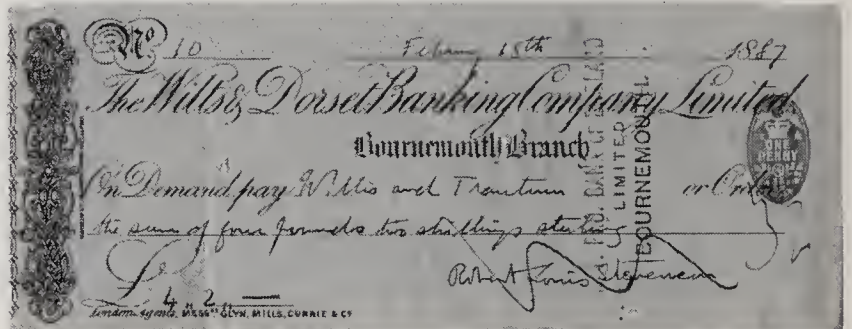 No 10 Febry 18th 1887
The Wilts & Dorset Banking Company Limited
Bournemouth Branch
On Demand pay Willis and or Order
the sum of four pounds two shillings sterling
Robert Louis Stevenson
£ 4 " 2 " —
London Agents, MESSRS GLYN, MILLS, CURRIE & CO
ONE
PENNY
PRO. BANK OF LAND
LIMITED
BOURNEMOUTH